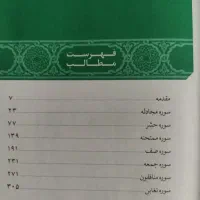 فهرست
مطالب
مقدمه ۷
سوره مجادله ۲۳
سوره حشر ۷۷
سوره ممتحنه ۱۳۹
سوره صف ۱۹۱
سوره جمعه ۲۳۱
سوره منافقون ۲۷۱
سوره تغابن ۳۰۵